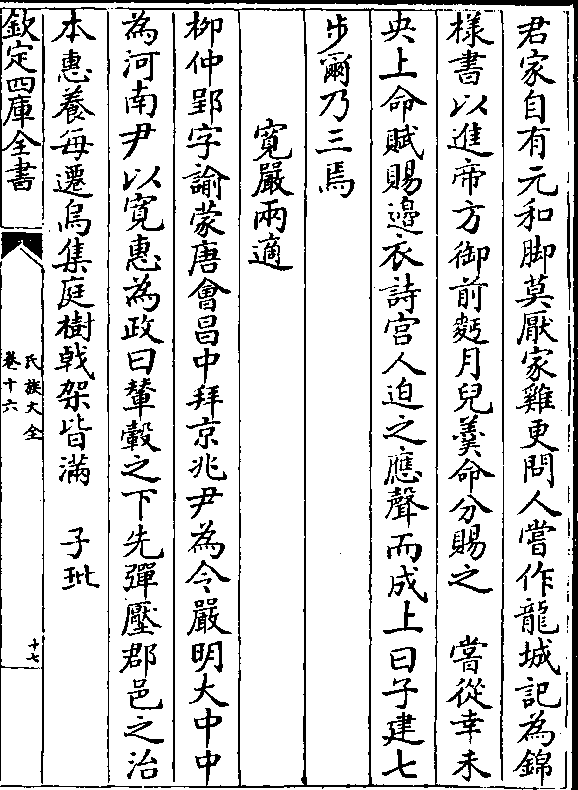 君家自有元和脚莫厭家雞更問人嘗作龍城記為錦
様書以進帝方御前麪月兒羹命分賜之　嘗從幸未
央上命賦賜邉衣詩宫人迫之應聲而成上曰子建七
步爾乃三焉
寛嚴兩適
栁仲郢字諭蒙唐會昌中拜京兆尹為令嚴明大中中
為河南尹以寛惠為政曰輦轂之下先彈壓郡邑之治
本惠養每遷烏集庭樹戟架皆滿　子玭
欽定四庫全書
氏族大全
卷十六
十七